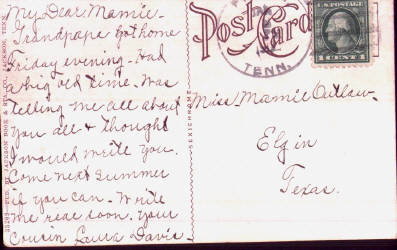 My Dear Mamie -
Grandpape got home
Friday evening. Had
a big old time. Was
telling me all about
you all & thought
I would write you.
Come next summer
if you can. Write
me real soon. Your
Cousin Laura Davis.
Post Card
TENN.
U.S. POSTAGE
1 CENT 1
Miss Mamie Outlaw.
Elgin
Texas.
SEXICHROME
PUB. BY JACKSON BOOK & STA. CO. JACKSON, TENN.